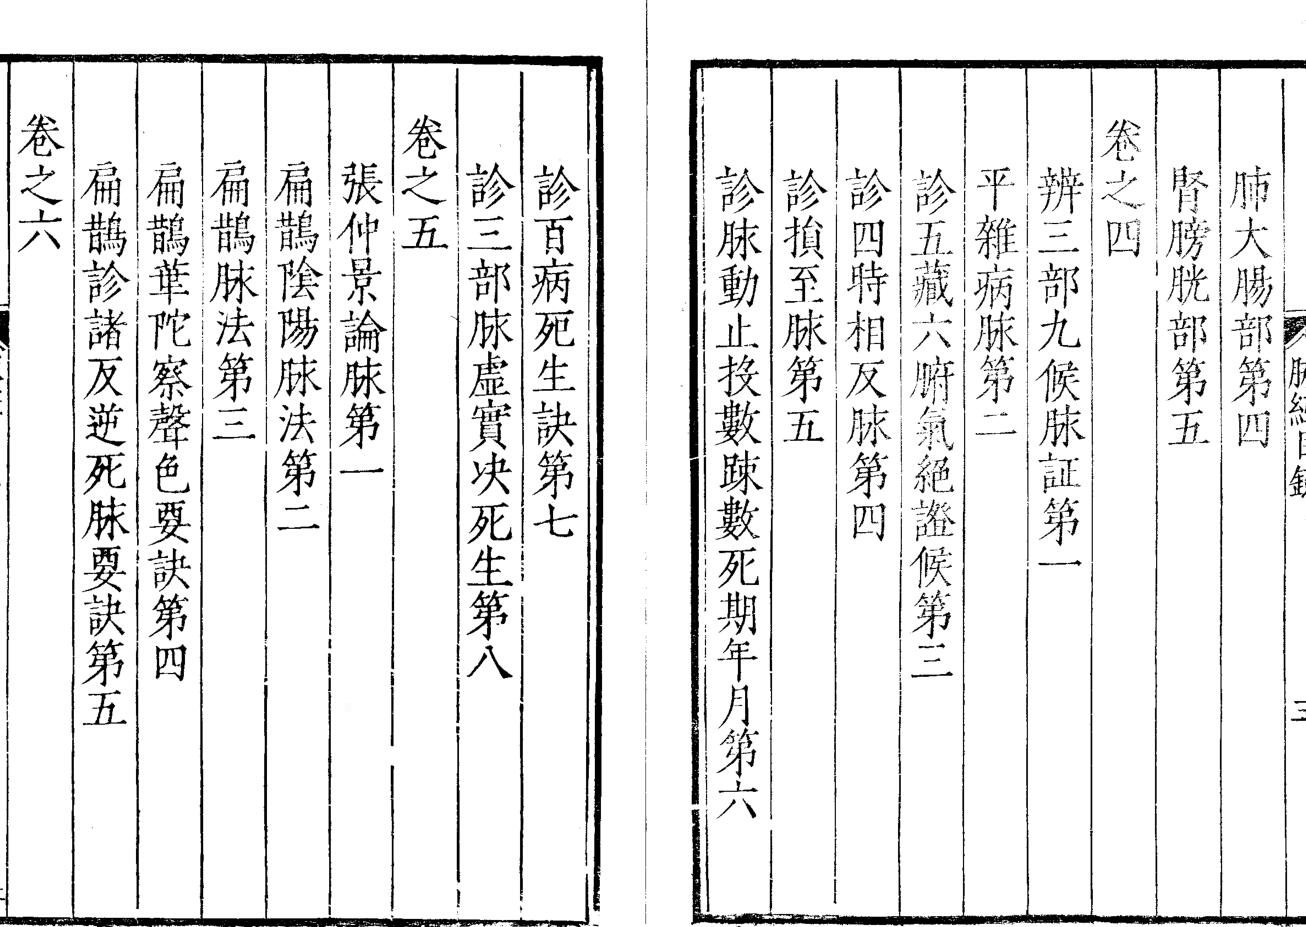 脉經目錄
三
肺大腸部第四
腎膀胱部第五
卷之四
辨三部九候脉証第一
平雜病脉第二
診五藏六腑氣絕證候第三
診四時相反脉第四
診損至脉第五
診脉動止投數踈數死期年月第六
診百病死生訣第七
診三部脉虛實决死生第八
卷之五
張仲景論脉第一
扁鵲陰陽脉法第二
扁鵲脉法第三
扁鵲華陀察聲色要訣第四
扁鵲診諸反逆死脉要訣第五
卷之六